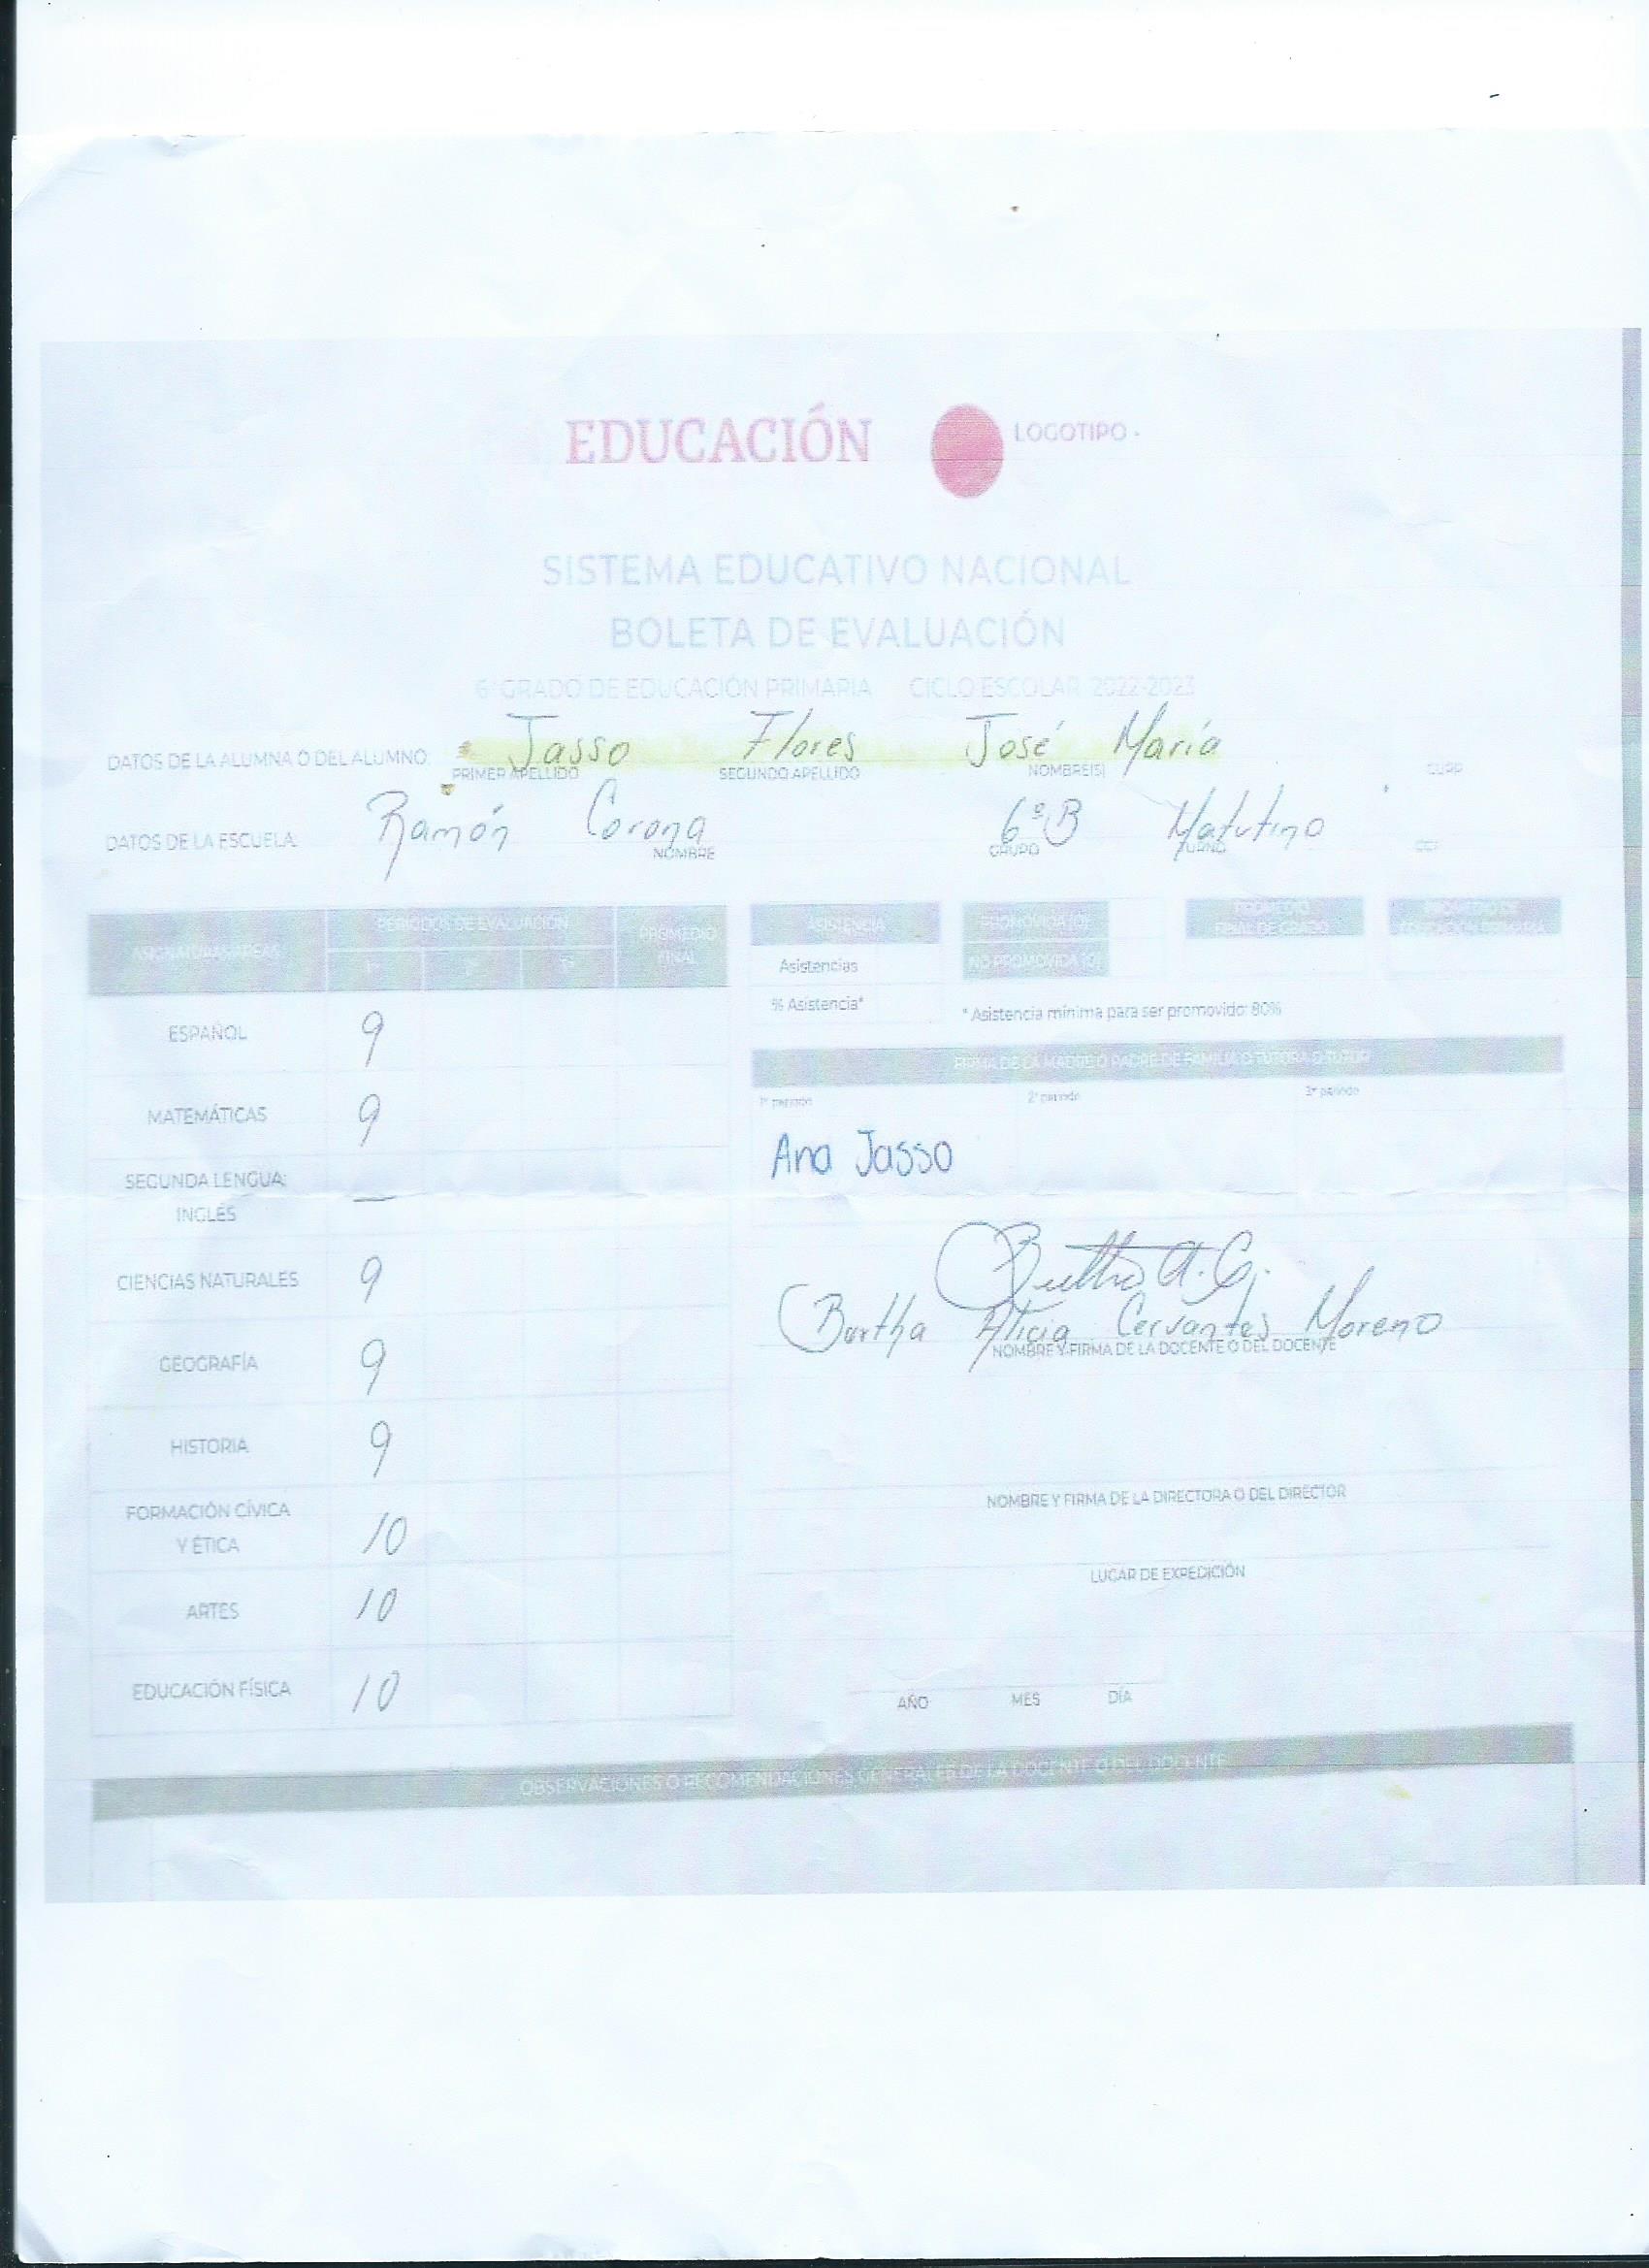 EDUCACIÓN LOGOTIPO -
SISTEMA EDUCATIVO NACIONAL
BOLETA DE EVALUACIÓN
6° GRADO DE EDUCACIÓN PRIMARIA CICLO ESCOLAR 2022-2023
DATOS DE LA ALUMNA O DEL ALUMNO: Jasso Flores José María
PRIMER APELLIDO SEGUNDO APELLIDO NOMBRE(S) CURP
DATOS DE LA ESCUELA: Ramón Corona 6º B Matutino
NOMBRE GRUPO TURNO CCT
ASIGNATURAS/ÁREAS PERIODOS DE EVALUACIÓN PROMEDIO FINAL
1° 2° 3°
ESPAÑOL 9
MATEMÁTICAS 9
SEGUNDA LENGUA:
INGLÉS —
CIENCIAS NATURALES 9
GEOGRAFÍA 9
HISTORIA 9
FORMACIÓN CÍVICA
Y ÉTICA 10
ARTES 10
EDUCACIÓN FÍSICA 10
ASISTENCIA
Asistencias
% Asistencia*
PROMOVIDA (O)
NO PROMOVIDA (O)
PROMEDIO
FINAL DE GRADO
PROMEDIO DE
EDUCACIÓN PRIMARIA
* Asistencia mínima para ser promovido: 80%
FIRMA DE LA MADRE O PADRE DE FAMILIA O TUTORA O TUTOR
1° periodo 2° periodo 3° periodo
Ana Jasso
Bertha A. C.
Bertha Alicia Cervantes Moreno
NOMBRE Y FIRMA DE LA DOCENTE O DEL DOCENTE
NOMBRE Y FIRMA DE LA DIRECTORA O DEL DIRECTOR
LUGAR DE EXPEDICIÓN
AÑO MES DÍA
OBSERVACIONES O RECOMENDACIONES GENERALES DE LA DOCENTE O DEL DOCENTE